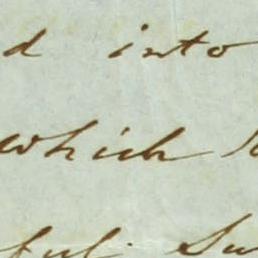 d into
which
ful Su